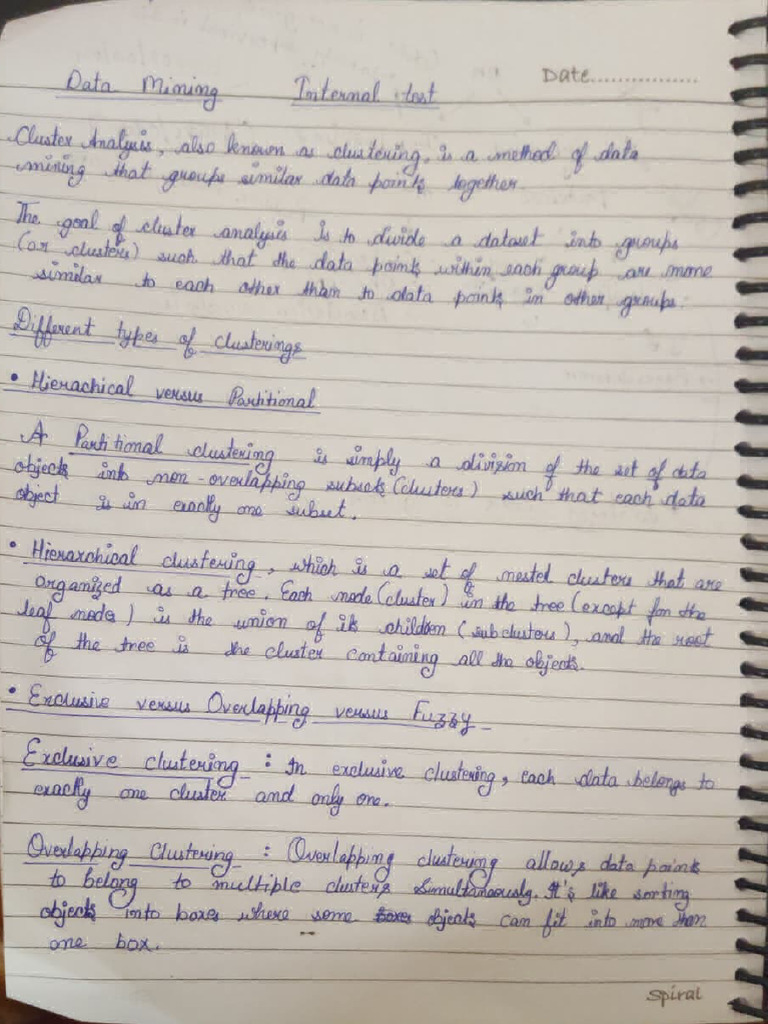 Date................
Data Mining Internal test
Cluster Analysis, also known as clustering, is a method of data
mining that groups similar data points together.
The goal of cluster analysis is to divide a dataset into groups
(or clusters) such that the data points within each group are more
similar to each other than to data points in other groups.
Different types of clusterings
• Hierachical versus Partitional
A Partitional clustering is simply a division of the set of data
objects into non-overlapping subsets (clusters) such that each data
object is in exactly one subset.
• Hierarchical clustering, which is a set of nested clusters that are
organized as a tree. Each node (cluster) in the tree (except for the
leaf nodes) is the union of its children (subclusters), and the root
of the tree is the cluster containing all the objects.
• Exclusive versus Overlapping versus Fuzzy
Exclusive clustering : In exclusive clustering, each data belongs to
exactly one cluster and only one.
Overlapping Clustering : Overlapping clustering allows data points
to belong to multiple clusters simultaneously. It's like sorting
objects into boxes where some boxes objects can fit into more than
one box.
Spiral